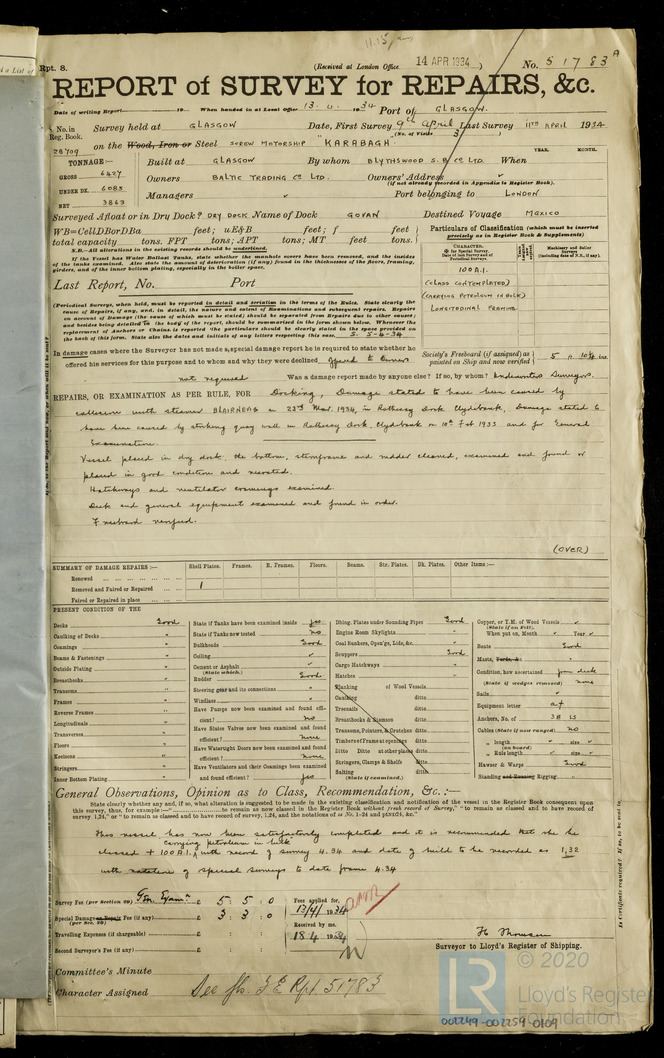 Rpt. 8.
(Received at London Office 14 APR 1934)
No. 51783
REPORT of SURVEY for REPAIRS, &c.
Date of writing Report 19 When handed in at Local Office 13.4.1934 Port of GLASGOW.
No. in Reg. Book. Survey held at GLASGOW Date, First Survey 9th April Last Survey 11TH APRIL 1934
(No. of Visits 3)
28709 on the Wood, Iron or Steel SCREW MOTORSHIP "KARABAGH"
TONNAGE:— Built at GLASGOW By whom BLYTHSWOOD S.B. Co LTD. When YEAR. MONTH.
GROSS 6427
UNDER DK. 6085
NET 3869
Owners BALTIC TRADING Co LTD. Owners' Address
(if not already recorded in Appendix to Register Book).
Managers Port belonging to LONDON
Surveyed Afloat or in Dry Dock? DRY DOCK Name of Dock GOVAN Destined Voyage MEXICO
WB=CellDBorDBa feet; uE&B feet; f feet
total capacity tons. FPT tons; APT tons; MT feet tons.
N.B.—All alterations in the existing records should be underlined.
If the Vessel has Water Ballast Tanks, state whether the manhole covers have been removed, and the insides of the tanks examined. Also state the amount of deterioration (if any) found in the thicknesses of the floors, framing, girders, and of the inner bottom plating, especially in the boiler space.
Particulars of Classification (which must be inserted precisely as in Register Book & Supplements)
CHARACTER.
100 A.1.
(CLASS CONTEMPLATED)
(CARRYING PETROLEUM IN BULK)
LONGITUDINAL FRAMING
Last Report, No. Port
(Periodical Surveys, when held, must be reported in detail and seriatim in the terms of the Rules. State clearly the cause of Repairs, if any, and, in detail, the nature and extent of Examinations and subsequent repairs. Repairs on account of Damage (the cause of which must be stated) should be separated from Repairs due to other causes; and besides being detailed in the body of the report, should be summarised in the form shown below. Whenever the replacement of Anchors or Chains is reported the particulars should be clearly stated in the space provided on the back of this form. State also the dates and initials of any letters respecting this case. S. 5-4-34
In damage cases where the Surveyor has not made a special damage report he is required to state whether he offered his services for this purpose and to whom and why they were declined Offered to Owners
Society's Freeboard (if assigned) as painted on Ship and now verified 5 ft. 10¾ ins.
not required Was a damage report made by anyone else? If so, by whom? Underwriters Surveyors.
REPAIRS, OR EXAMINATION AS PER RULE, FOR Docking, Damage stated to have been caused by
collision with steamer BLAIRNEAG on 22nd Mar. 1934, in Rothesay Dock Clydebank, Damage stated to
have been caused by striking quay wall in Rothesay Dock, Clydebank on 10th Feb 1933 and for General
Examination.
Vessel placed in dry dock, the bottom, sternframe and rudder cleaned, examined and found or
placed in good condition and recoated.
Hatchways and ventilator coamings examined.
Deck and general equipment examined and found in order.
Freeboard verified.
(OVER)
SUMMARY OF DAMAGE REPAIRS:— Shell Plates. Frames. R. Frames. Floors. Beams. Str. Plates. Dk. Plates. Other Items:—
Renewed
Removed and Faired or Repaired 1
Faired or Repaired in place
PRESENT CONDITION OF THE
Decks Good
Caulking of Decks "
Coamings "
Beams & Fastenings "
Outside Plating "
Breasthooks "
Transoms "
Frames "
Reverse Frames "
Longitudinals "
Transverses "
Floors "
Keelsons "
Stringers "
Inner Bottom Plating "
State if Tanks have been examined inside yes
State if Tanks now tested no
Bulkheads Good
Ceiling
Cement or Asphalt
(State which.)
Rudder Good
Steering gear and its connections "
Windlass "
Have Pumps now been examined and found efficient? no
Have Sluice Valves now been examined and found efficient? none
Have Watertight Doors now been examined and found efficient? none
Have Ventilators and their Coamings been examined and found efficient? yes
Dblng. Plates under Sounding Pipes Good
Engine Room Skylights "
Coal Bunkers, Open'gs, Lids, &c.
Scuppers Good
Cargo Hatchways "
Hatches "
Planking of Wood Vessels
Caulking ditto
Treenails ditto
Breasthooks & Stemson ditto
Transoms, Pointers, & Crutches ditto
Timbers of Frame at openings ditto
Ditto Ditto at other places ditto
Stringers, Clamps & Shelfs ditto
Salting ditto
(State if examined.)
Copper, or Y.M. of Wood Vessels
(State if on Felt).
When put on, Month Year
Boats Good
Masts, Yards, &c. "
Condition, how ascertained from deck
(State if wedges removed) none
Sails
Equipment letter at
Anchors, No. of 3B 1S
Cables (State if now ranged) no
" length size
(on board)
" Rule length size
Hawser & Warps Good
Standing and Running Rigging "
General Observations, Opinion as to Class, Recommendation, &c.:—
State clearly whether any and, if so, what alteration is suggested to be made in the existing classification and notification of the vessel in the Register Book consequent upon this survey, thus, for example:—" to remain as now classed in the Register Book without fresh record of Survey," "to remain as classed and to have record of survey 1,24," or "to remain as classed and to have record of survey, 1,24, and the notations of ss No. 1-24 and ptNo1,24, &c."
This vessel has now been satisfactorily completed and it is recommended that she be
carrying petroleum in bulk
classed + 100 A.1. with record of survey 4.34 and date of build to be recorded as 1,32
with notation of special surveys to date from 4.34
Survey Fee (per Section 29) Gen. Exam. £ 5 : 5 : 0
Special Damage or Repair Fee (if any) £ 3 : 3 : 0
(per Sec. 29)
Travelling Expenses (if chargeable) £ : :
Second Surveyor's Fee (if any) £ : :
Fees applied for, 13/4/1934
Received by me, 18.4.1934
Surveyor to Lloyd's Register of Shipping.
Committee's Minute
Character Assigned See Gls. F.E. Rpt 51783
Is Certificate required? If so, to be sent to
© 2020
LR
Lloyd's Register
Foundation
002249-002259-0109